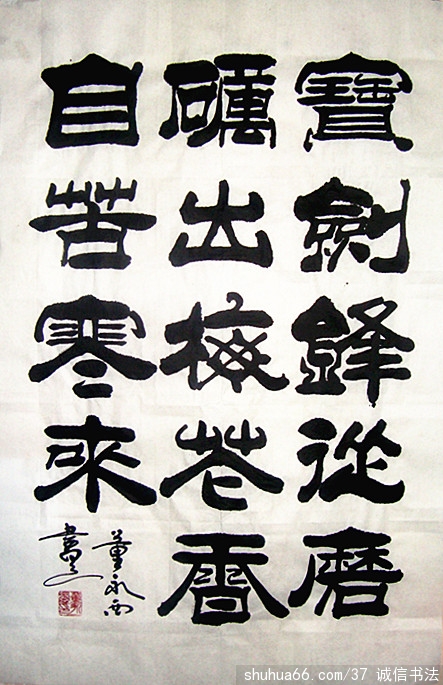 寶劍鋒從磨
礪出梅花香
自苦寒來
董永西
書
shuhua66.com/37 诚信书法